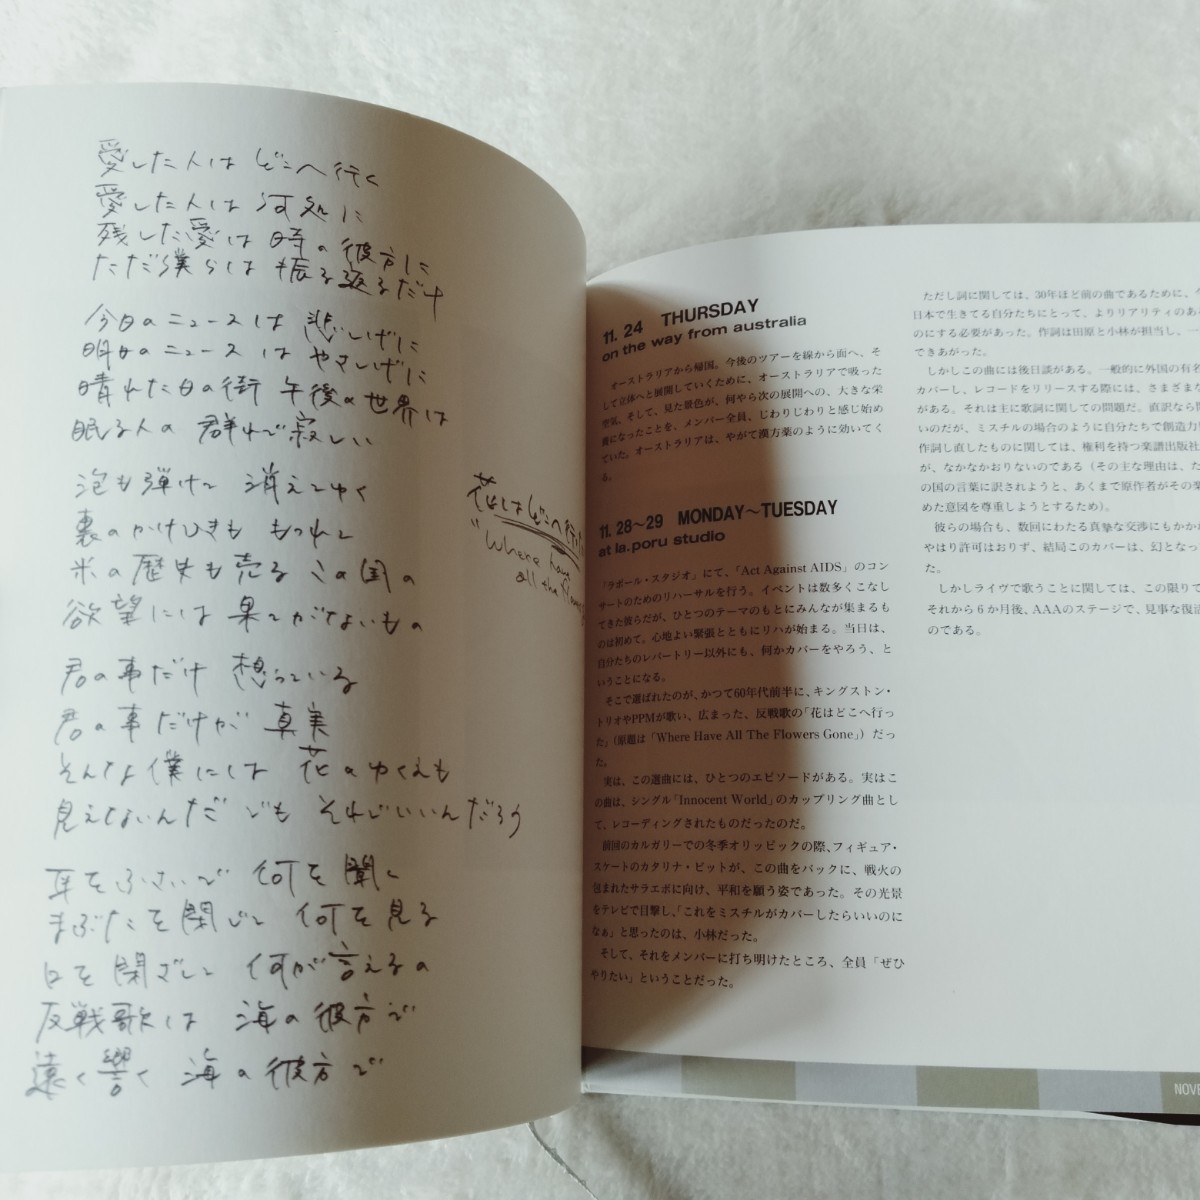 愛した人は どこへ行く
愛した人は 何処に
残した愛は 時の彼方に
ただ僕らは 振る返るだけ
今日のニュースは 悲しいげに
明日のニュースは やさしいげに
晴れた日の街 午後の世界は
眠る人の 群れで寂しい
泡も弾けて 消えてゆく
裏のかけひきも もつれて
米の歴史も売る この国の
欲望には 果てがないもの
君の事だけ 想っている
君の事だけが 真実
そんな僕には 花のゆくえも
見えないんだ でも それでいいんだろう
耳をふさいで 何を聞く
まぶたを閉じて 何を見る
口を閉ざして 何が言えるの
反戦歌は 海の彼方で
遠く響く 海の彼方で
花はどこへ行った
"Where have
all the flowers
11. 24 THURSDAY
on the way from australia
オーストラリアから帰国。今後のツアーを線から面へ、そ
して立体へと展開していくために、オーストラリアで吸った
空気。そして、見た景色が、何やら次の展開への、大きな栄
養になったことを、メンバー全員、じわりじわりと感じ始め
ていた。オーストラリアは、やがて漢方薬のように効いてく
る。
11. 28〜29 MONDAY〜TUESDAY
at la.poru studio
「ラポール・スタジオ」にて、「Act Against AIDS」のコン
サートのためのリハーサルを行う。イベントは数多くこなし
てきた彼らだが、ひとつのテーマのもとにみんなが集まるも
のは初めて。心地よい緊張とともにリハが始まる。当日は、
自分たちのレパートリー以外にも、何かカバーをやろう、と
いうことになる。
そこで選ばれたのが、かつて60年代前半に、キングストン・
トリオやPPMが歌い、広まった、反戦歌の「花はどこへ行っ
た」(原題は「Where Have All The Flowers Gone」) だっ
た。
実は、この選曲には、ひとつのエピソードがある。実はこ
の曲は、シングル「Innocent World」のカップリング曲とし
て、レコーディングされたものだったのだ。
前回のカルガリーでの冬季オリッピックの際、フィギュア・
スケートのカタリナ・ビットが、この曲をバックに、戦火の
包まれたサラエボに向け、平和を願う姿であった。その光景
をテレビで目撃し、「これをミスチルがカバーしたらいいのに
なぁ」と思ったのは、小林だった。
そして、それをメンバーに打ち明けたところ、全員「ぜひ
やりたい」ということだった。
ただし詞に関しては、30年ほど前の曲であるために、今
日本で生きてる自分たちにとって、よりリアリティのある
のにする必要があった。作詞は田原と小林が担当し、一
できあがった。
しかしこの曲には後日談がある。一般的に外国の有名
カバーし、レコードをリリースする際には、さまざま
がある。それは主に歌詞に関しての問題だ。直訳なら問
いのだが、ミスチルの場合のように自分たちで創造力
作詞し直したものに関しては、権利を持つ楽譜出版社
が、なかなかおりないのである (その主な理由は、た
の国の言葉に訳されようと、あくまで原作者がその楽
めた意図を尊重しようとするため)。
彼らの場合も、数回にわたる真摯な交渉にもかか
やはり許可はおりず、結局このカバーは、幻となっ
た。
しかしライヴで歌うことに関しては、この限りで
それから6か月後、AAAのステージで、見事な復活
のである。
NOVE